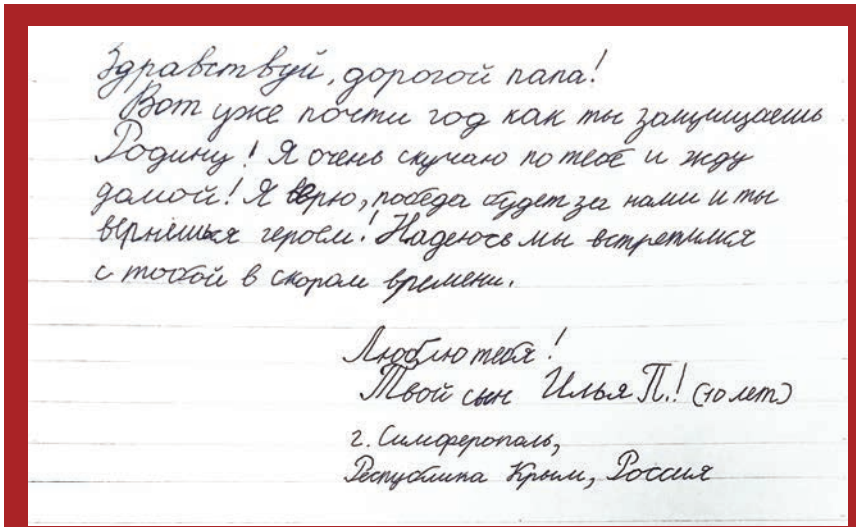 Здравствуй, дорогой папа!
Вот уже почти год как ты защищаешь
Родину! Я очень скучаю по тебе и жду
домой! Я верю, победа будет за нами и ты
вернешься героем! Надеюсь мы встретимся
с тобой в скором времени.
Люблю тебя!
Твой сын Илья П.! (10 лет)
г. Симферополь,
Республика Крым, Россия